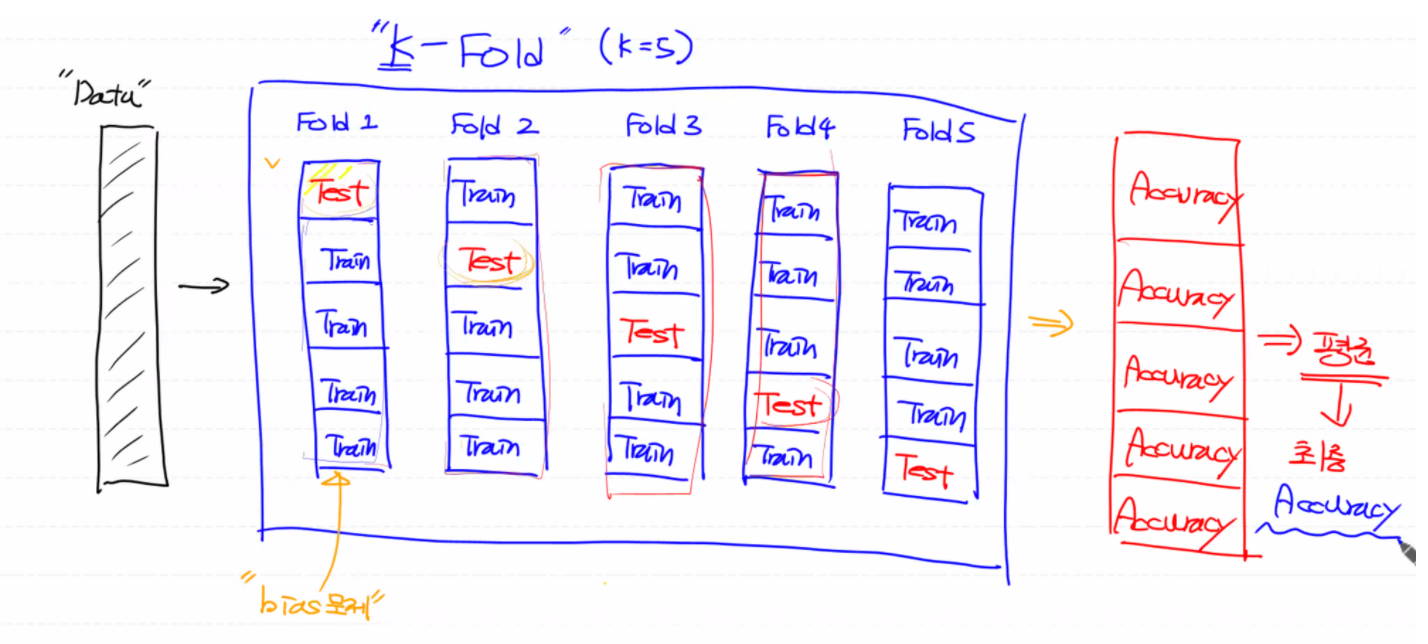 "K-Fold" (K=5)
"Data"
Fold 1
Test
Train
Train
Train
Train
Fold 2
Train
Test
Train
Train
Train
Fold 3
Train
Train
Test
Train
Train
Fold4
Train
Train
Train
Test
Train
Fold5
Train
Train
Train
Train
Test
"bias문제"
Accuracy
Accuracy
Accuracy
Accuracy
Accuracy
⇒ 평균
↓
최종
Accuracy